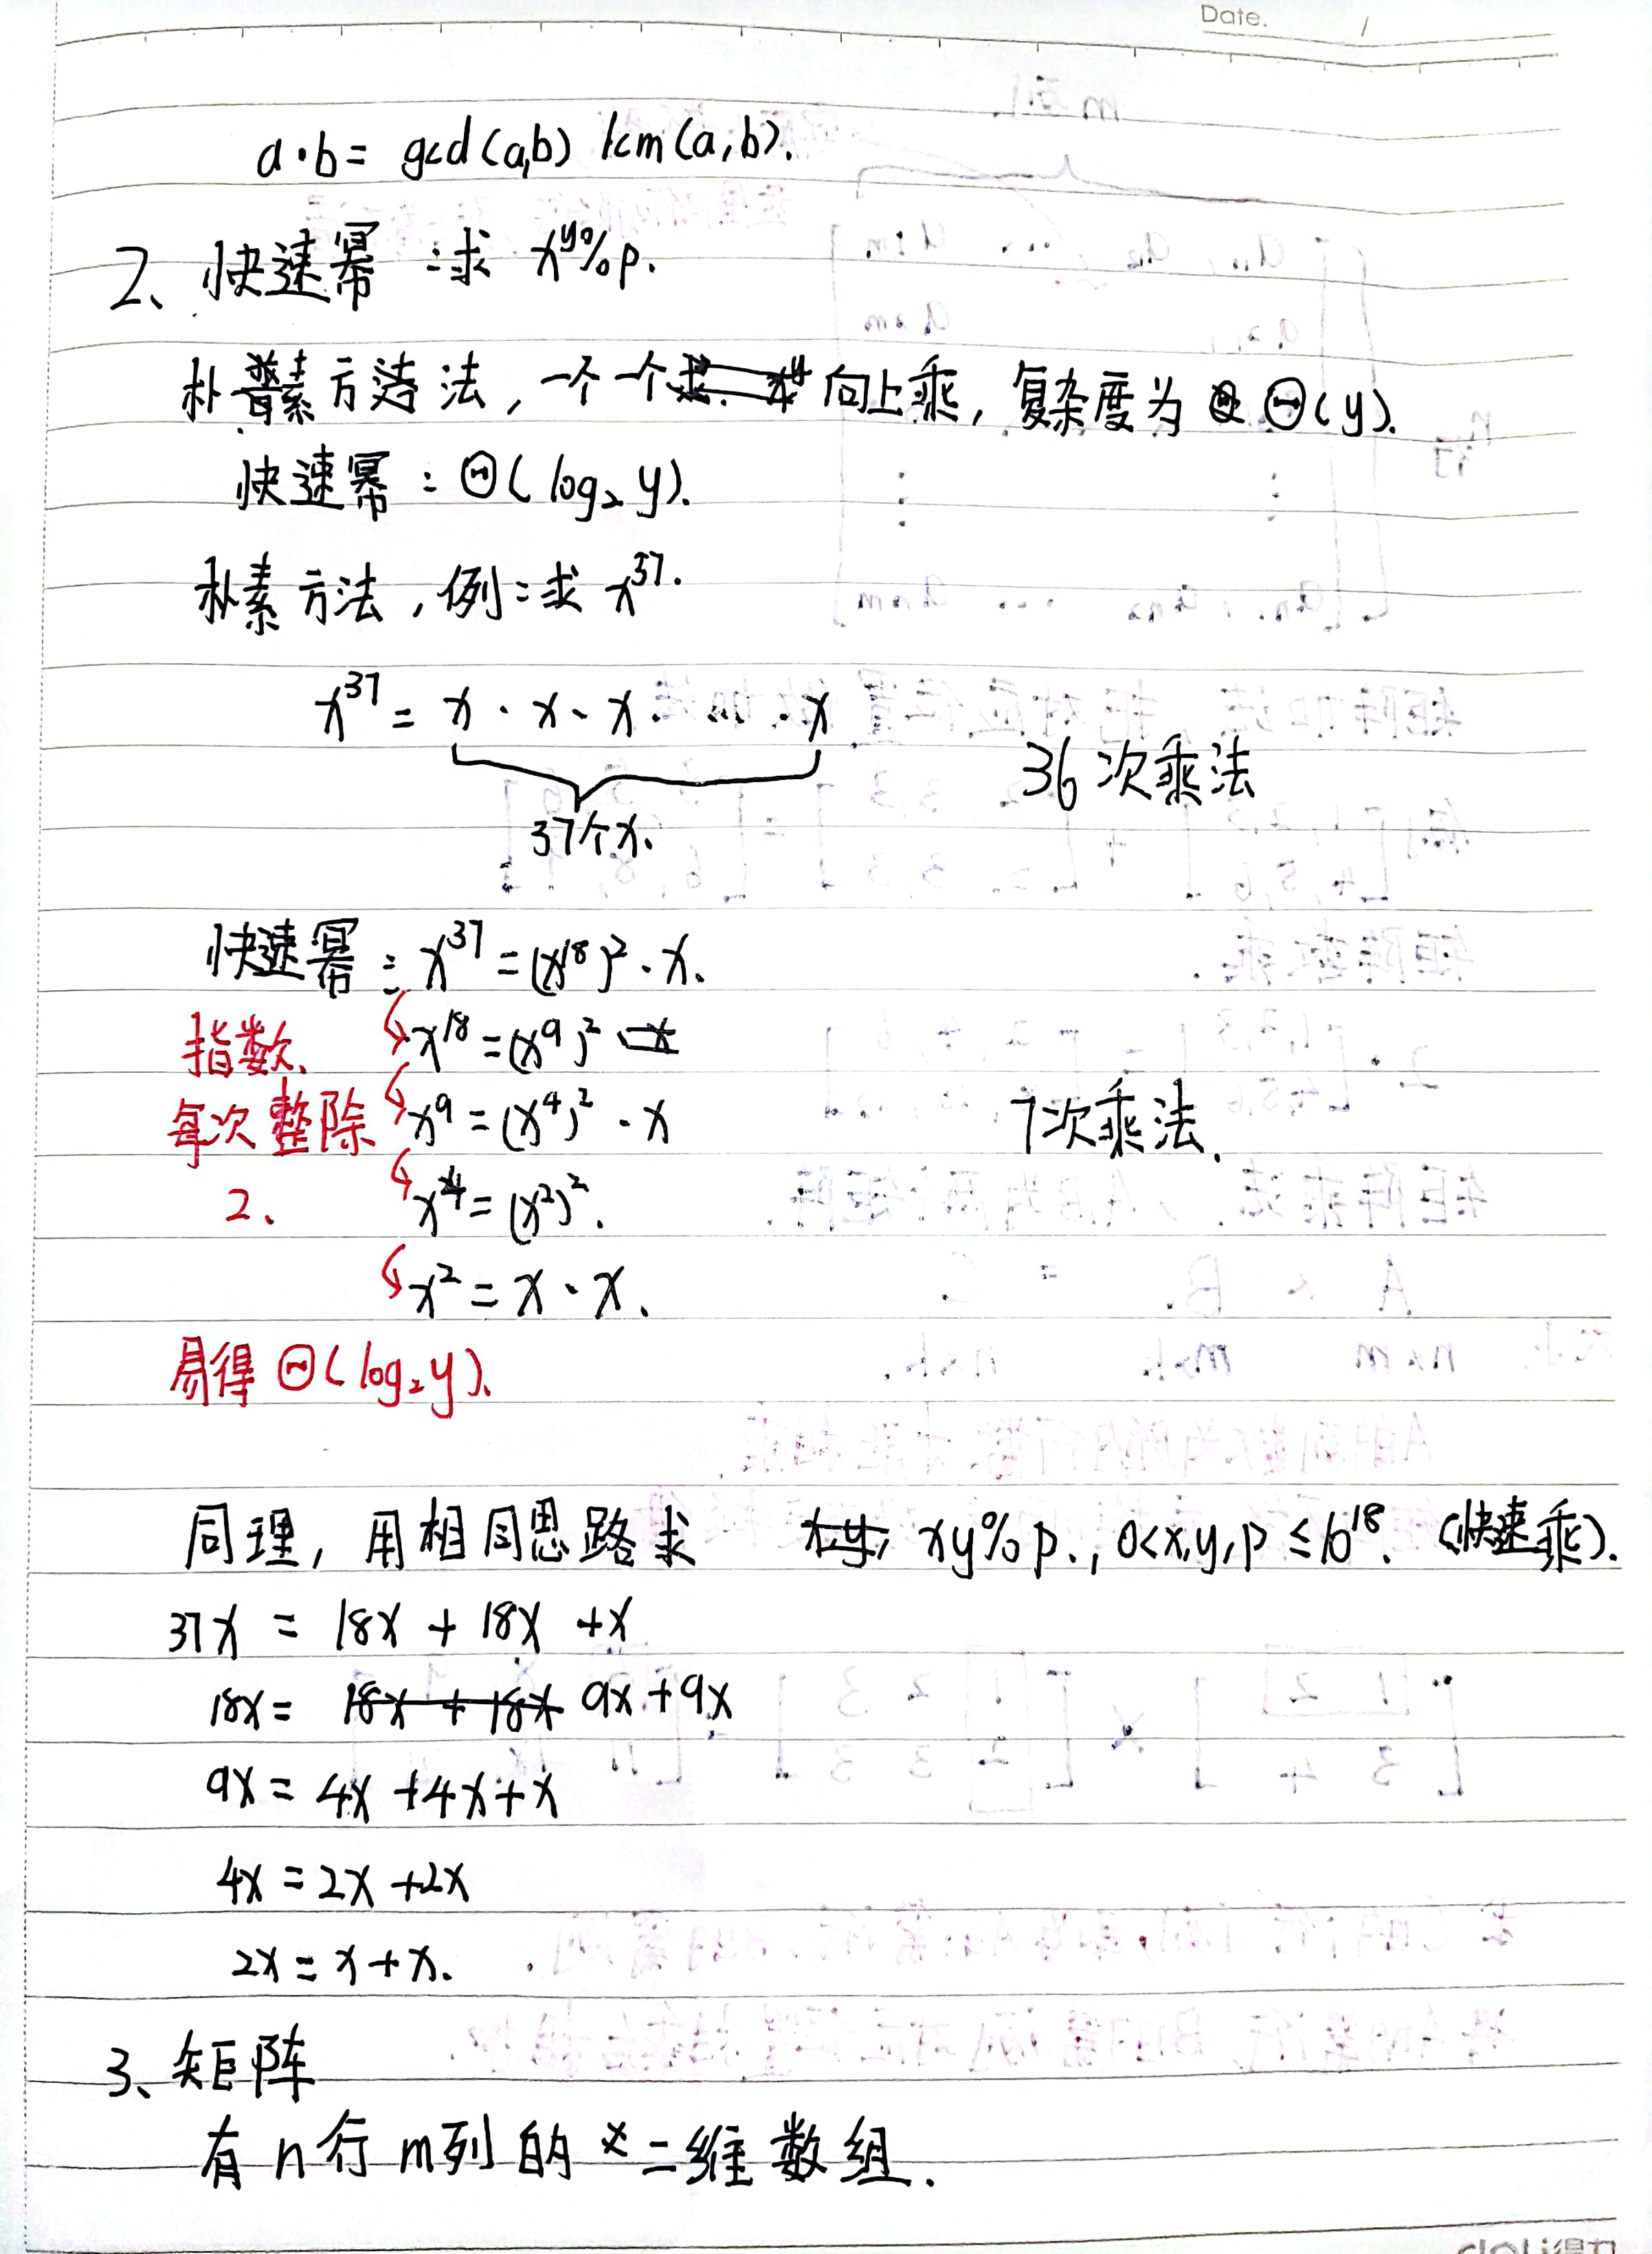 Date. /
a·b = gcd(a,b) lcm(a,b).
2、快速幂:求 x^y%p.
朴素方法,一个一个向上乘,复杂度为 Θ(y).
快速幂:Θ(log₂ y).
朴素方法,例:求 x³⁷.
x³⁷ = x · x · x · … · x
36次乘法
37个x.
快速幂:x³⁷ = (x¹⁸)² · x.
指数 x¹⁸ = (x⁹)²
每次整除 x⁹ = (x⁴)² · x 7次乘法.
2、 x⁴ = (x²)².
x² = x · x.
易得 Θ(log₂ y).
同理,用相同思路求 xy%p., 0<x,y,p ≤10¹⁸. (快速乘).
37x = 18x + 18x + x
18x = 9x + 9x
9x = 4x + 4x + x
4x = 2x + 2x
2x = x + x.
3、矩阵
有n行m列的二维数组.
deli得力